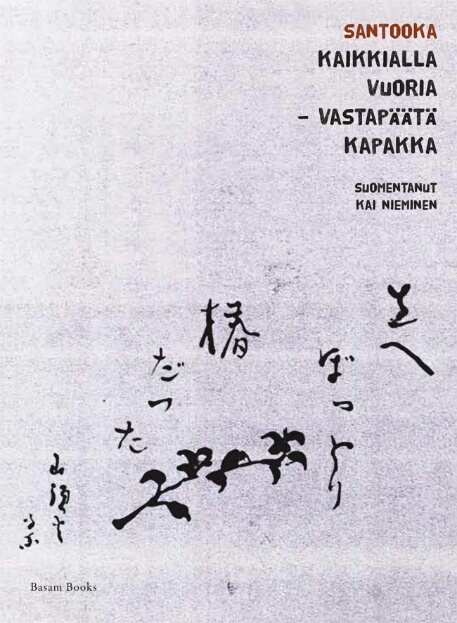 SANTOOKA
KAIKKIALLA
VUORIA
– VASTAPÄÄTÄ
KAPAKKA
SUOMENTANUT
KAI NIEMINEN
笠へ
ぽつとり
椿
だつ
た
山頭火
Basam Books